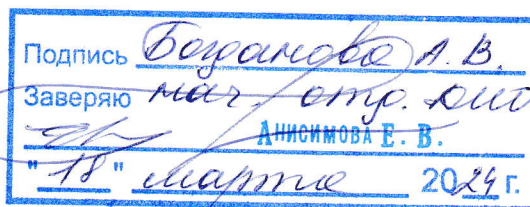 Подпись Богданова А. В.
Заверяю нач. отд.
Анисимова Е. В.
"18" марта 2024 г.